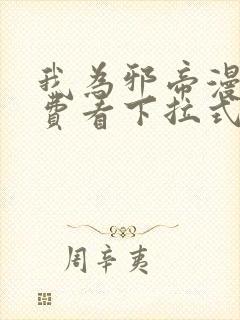 我为邪帝漫
费看下拉式
周辛夷